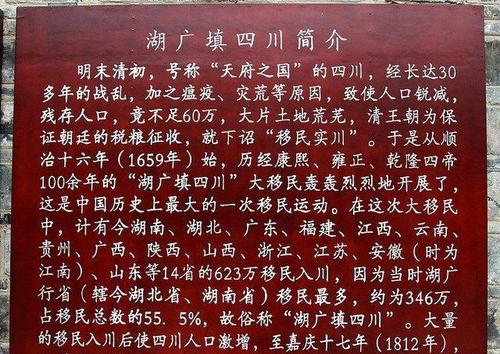 湖广填四川简介
明末清初，号称“天府之国”的四川，经长达30
多年的战乱，加之瘟疫、灾荒等原因，致使人口锐减，
残存人口，竟不足60万，大片土地荒芜，清王朝为保
证朝廷的税粮征收，就下诏“移民实川”。于是从顺
治十六年（1659年）始，历经康熙、雍正、乾隆四帝
100余年的“湖广填四川”大移民轰轰烈烈地开展了，
这是中国历史上最大的一次移民运动。在这次大移民
中，计有今湖南、湖北、广东、福建、江西、云南、
贵州、广西、陕西、山西、浙江、江苏、安徽（时为
江南）、山东等14省的623万移民入川，因为当时湖广
行省（辖今湖北省、湖南省）移民最多，约为346万，
占移民总数的55.5%，故俗称“湖广填四川”。大量
的移民入川后使四川人口激增，至嘉庆十七年（1812年），